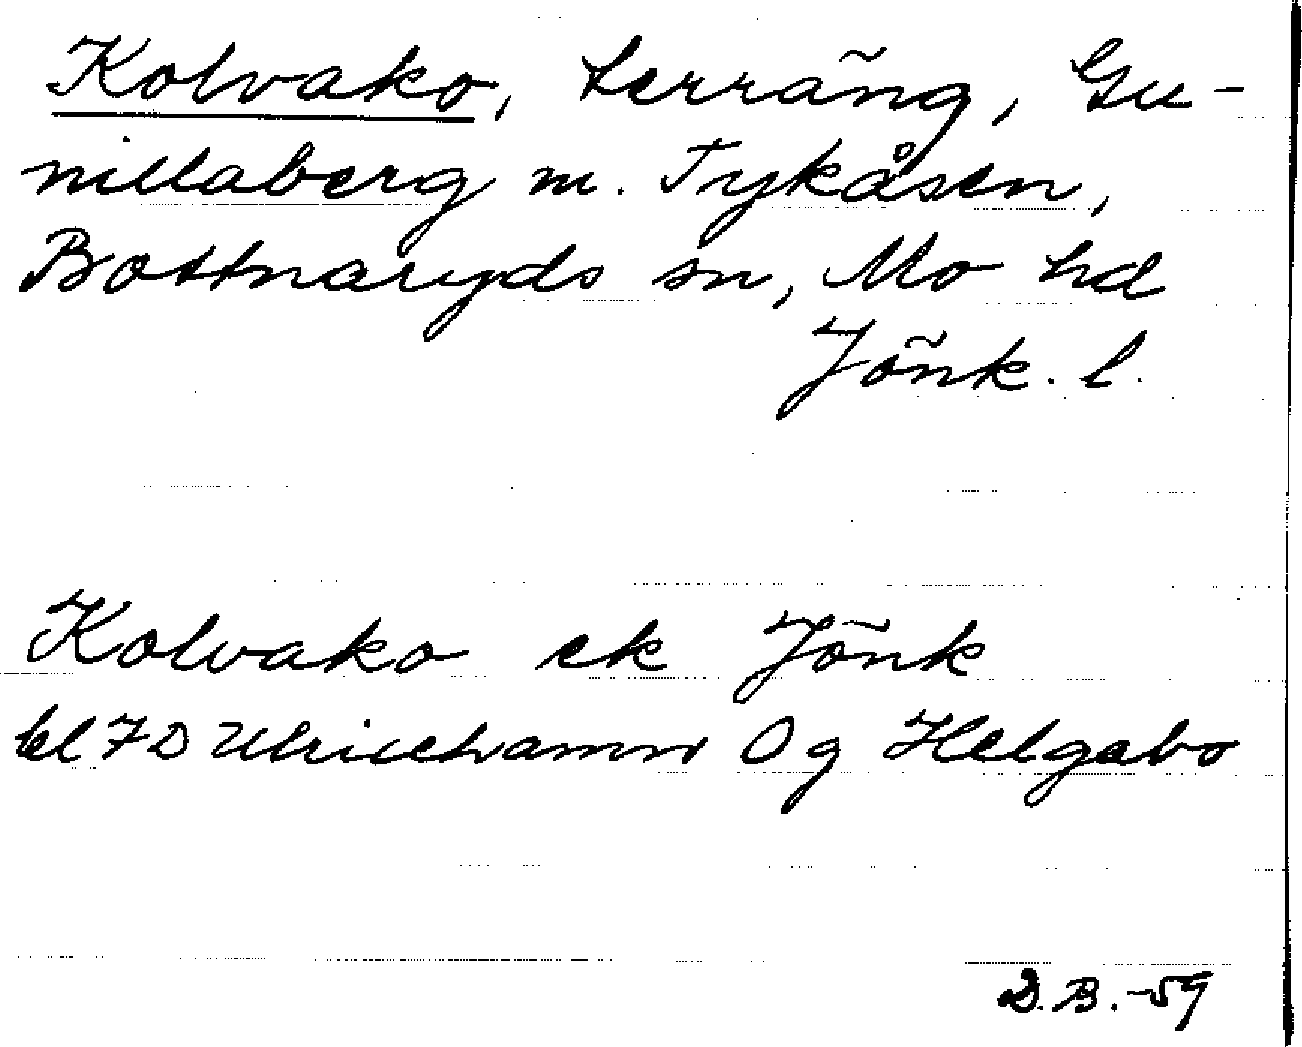 Kolvako, terräng, Gu-
nillaberg m. Tykåsen,
Bottnaryds sn, Mo hd
Jönk. l.
Kolvako ek Jönk
bl 7D Ulricehamn Og Helgabo
D.B.-59